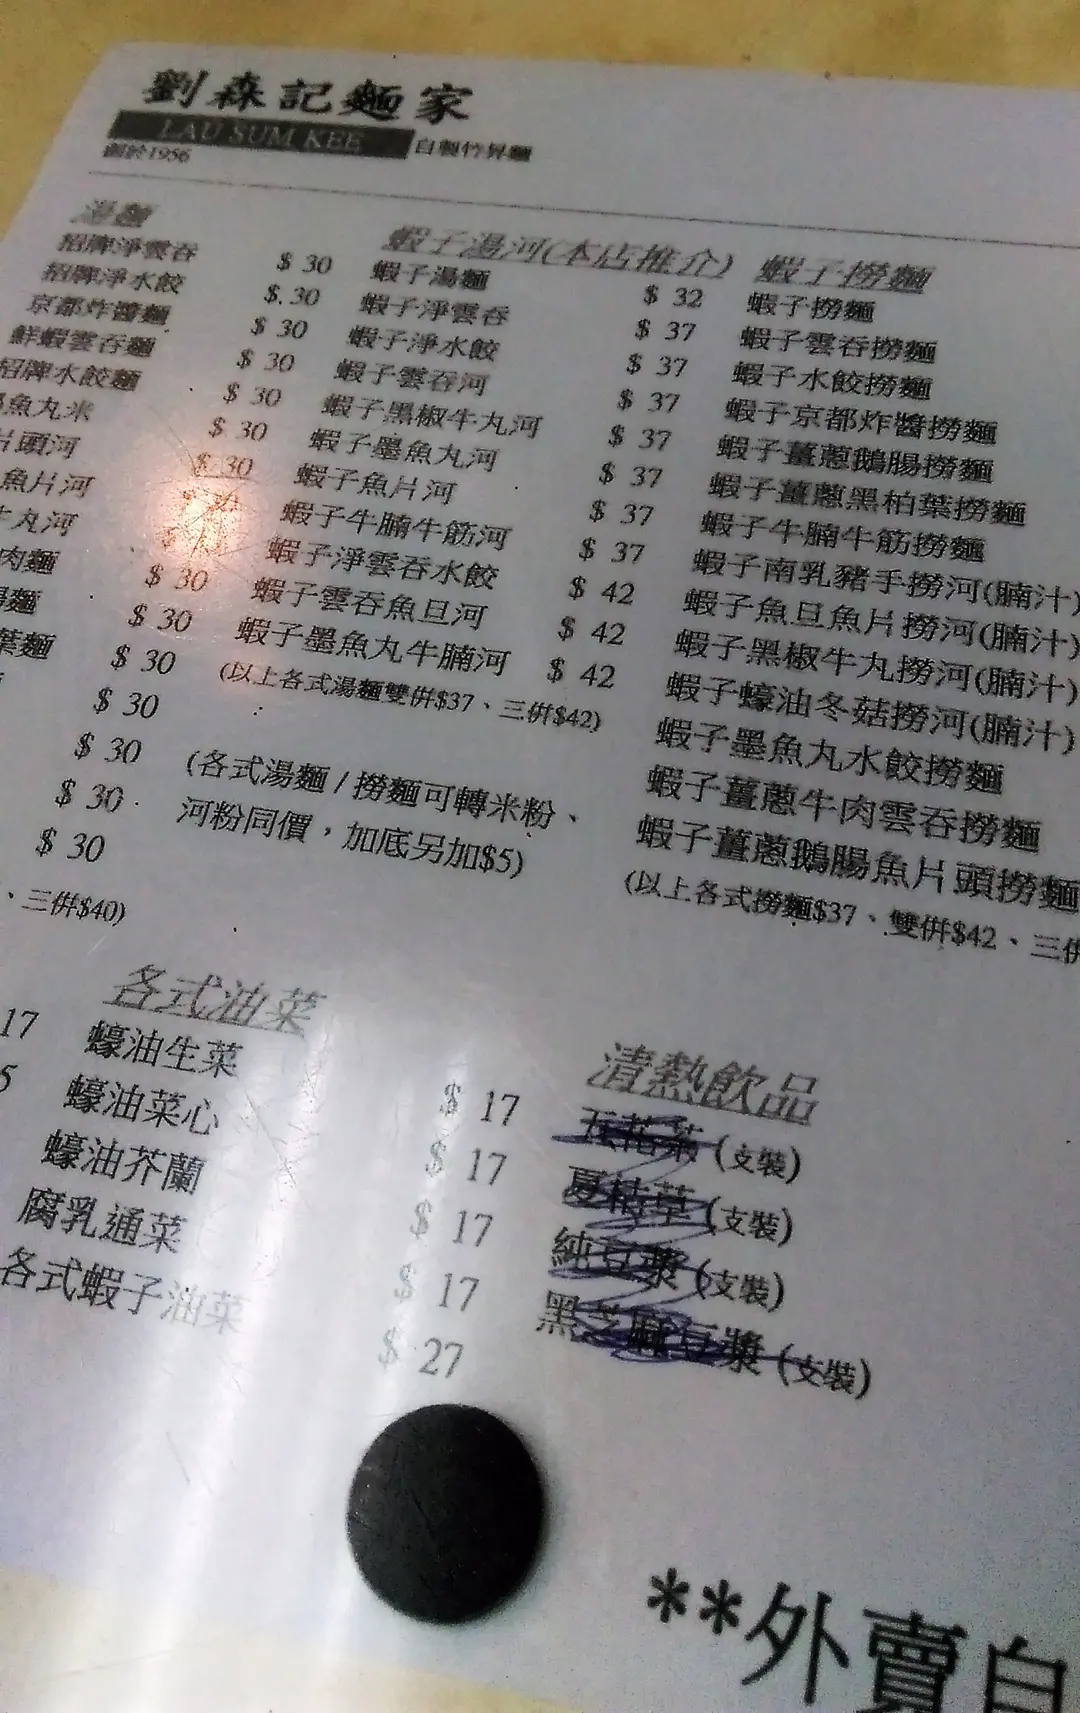 劉森記麵家
LAU SUM KEE 自製竹昇麵
創於1956
湯麵
招牌淨雲吞 $ 30
招牌淨水餃 $ 30
京都炸醬麵 $ 30
鮮蝦雲吞麵 $ 30
招牌水餃麵 $ 30
魚丸米 $ 30
片頭河 $ 30
魚片河
丸河
肉麵 $ 30
麵 $ 30
葉麵 $ 30
$ 30
$ 30
$ 30
$ 30
、三併$40)
蝦子湯河(本店推介)
蝦子湯麵 $ 32
蝦子淨雲吞 $ 37
蝦子淨水餃 $ 37
蝦子雲吞河 $ 37
蝦子黑椒牛丸河 $ 37
蝦子墨魚丸河 $ 37
蝦子魚片河 $ 37
蝦子牛腩牛筋河 $ 37
蝦子淨雲吞水餃 $ 42
蝦子雲吞魚旦河 $ 42
蝦子墨魚丸牛腩河 $ 42
(以上各式湯麵雙併$37、三併$42)
(各式湯麵 / 撈麵可轉米粉、
河粉同價，加底另加$5)
蝦子撈麵
蝦子撈麵
蝦子雲吞撈麵
蝦子水餃撈麵
蝦子京都炸醬撈麵
蝦子薑蔥鵝腸撈麵
蝦子薑蔥黑柏葉撈麵
蝦子牛腩牛筋撈麵
蝦子南乳豬手撈河(腩汁)
蝦子魚旦魚片撈河(腩汁)
蝦子黑椒牛丸撈河(腩汁)
蝦子蠔油冬菇撈河(腩汁)
蝦子墨魚丸水餃撈麵
蝦子薑蔥牛肉雲吞撈麵
蝦子薑蔥鵝腸魚片頭撈麵
(以上各式撈麵$37、雙併$42、三併
17
5
各式油菜
蠔油生菜 $ 17
蠔油菜心 $ 17
蠔油芥蘭 $ 17
腐乳通菜 $ 17
各式蝦子油菜 $ 27
清熱飲品
五花茶 (支裝)
夏枯草 (支裝)
純豆漿 (支裝)
黑芝麻豆漿 (支裝)
**外賣自